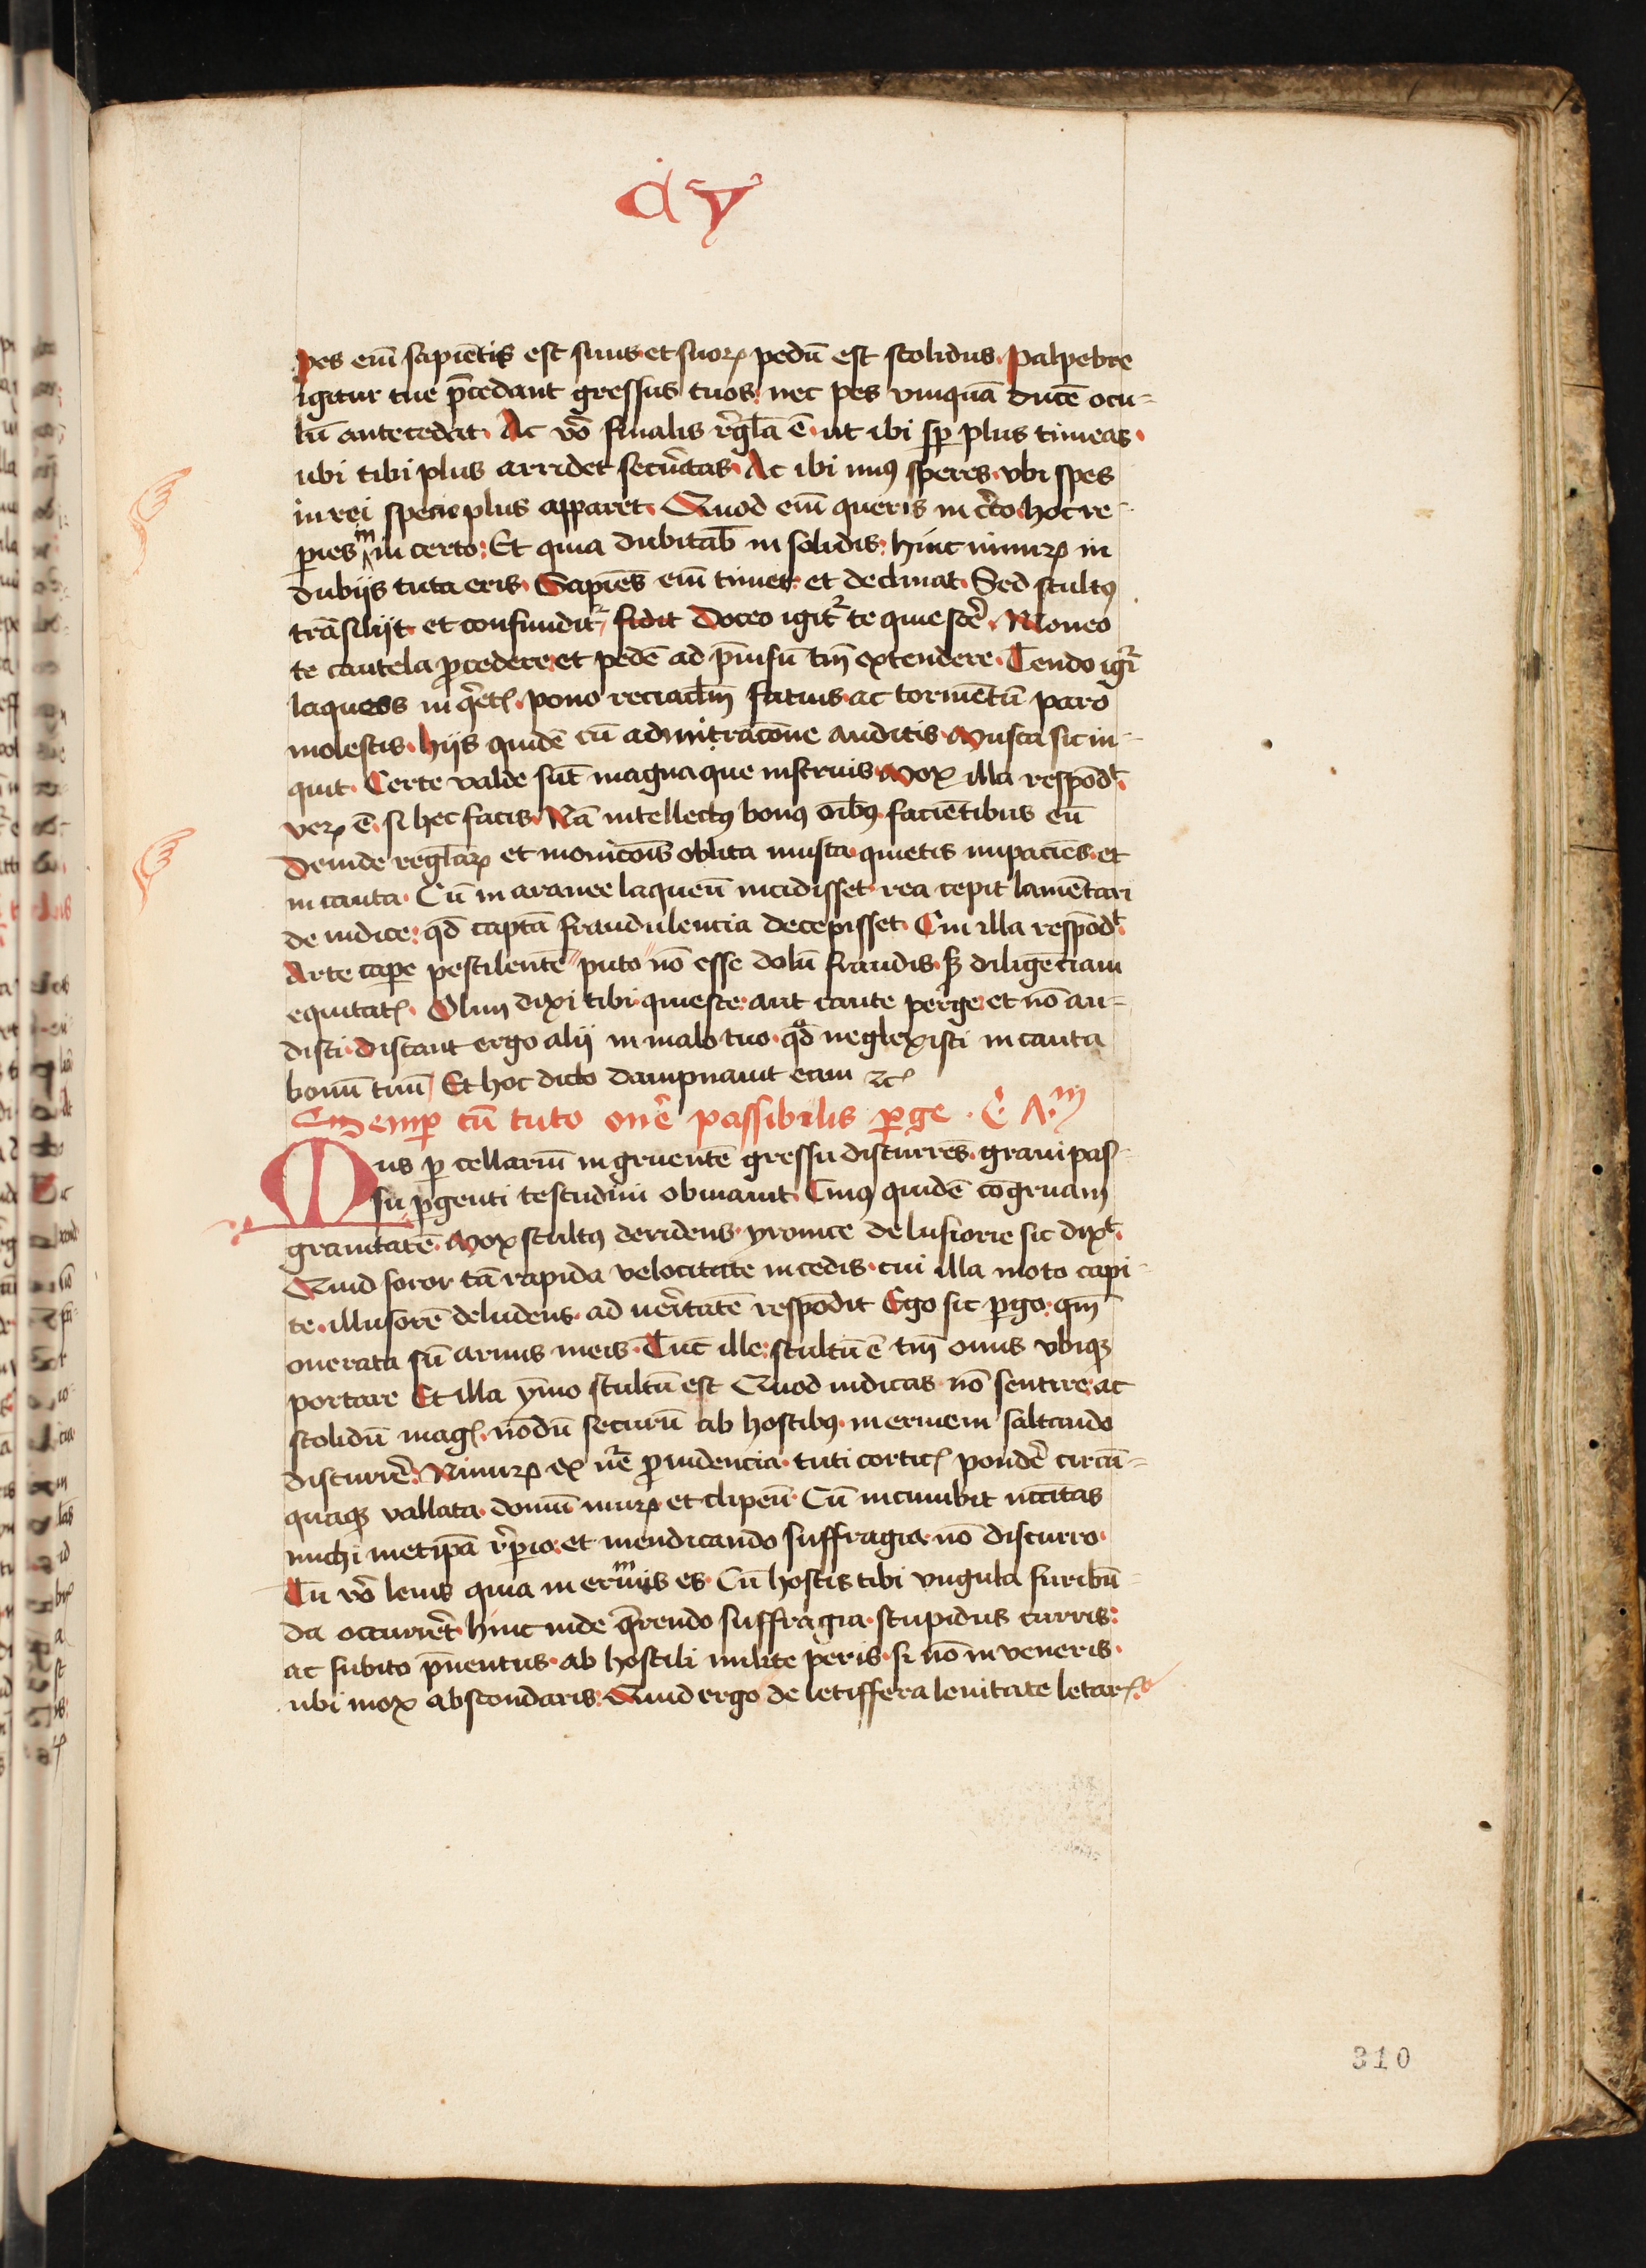 a v
pes em̄ sapiētis est suus et suoꝝ pedū est stolidus. Palpebre
igitur tue p̄cedant gressus tuos: nec pes vnquā ducē ocu-
lū antecedat. Ac vō finalis regla ē. ut ibi sp̄ plus timeas.
ubi tibi plus arridet secūritas. Ac ibi minꝰ speres. vbi spes
in rei specie plus apparet. Quod em̄ queris in c̄to. hoc re-
peries in in certo: Et quia dubitab̄ in solidis: hinc nimiꝝ in
dubijs tuta eris. Sapiēs em̄ timet: et declinat. Sed stultꝰ
trāsilijt et confundit᷑ fidit Doceo igit᷑ te quiescē᷑. Moneo
te cautela ꝓcedere: et pedē ad p̄uisū tm̄ extendere. Tendo igr̄
laqueos inq̄etꝭ. pono reciaclm̄ fatuis. ac tormētū paro
molestis. Hijs quidē cū admiracōne auditis. Musca sic in-
quit. Certe valde sūt magna que instruis. Mox illa respōdꝫ.
veꝝ ē. si hec facis. Nā intellectꝰ bonꝰ oībꝰ facientibus eū
Deinde reglaꝝ et monicōis oblita musca. quietis inpaciēs. et
in cauta. Cū in aranee laqueū incidisset. rea cepit lamētari
de iudice: qd̄ captā fraudulencia decepisset. Cui illa respōdꝫ.
Arte cape pestilentē puto nō esse dolū fraudis. sꝫ diligēciam
equitatꝭ. Olim dixi tibi quiesce: aut caute perge: et nō au-
disti. Discant ergo alij in malo tuo. qd̄ neglexisti in cauta
bonū tuū Et hoc dicto dampnauit eam ⁊cꝭ
Semꝑ cū tuto onē᷑ passibilis ꝑge. C. A.m
Mus ꝑ cellariū ingruentē gressu discurrēs. graui pas-
su ꝑgenti testudini obuiauit. Cuiꝰ quidē cōgruam
grauitatē. Mox stultꝰ deridens. yronice delusorie sic dixꝫ.
Quid soror tā rapida velocitate incedis. cui illa moto capi-
te. illusorē deludens. ad ueritatē respōdit Ego sic ꝑgo: qm̄
onerata sū armis meis. Tūc ille: stultū ē tm̄ onus vbiqꝫ
portare Et illa ymo stultū est Quod iudicas nō sentire: ac
stolidū magꝭ. nōdū securū ab hostibꝰ. inermem saltando
discurrē᷑. Nimiꝝ ex nr̄e ꝓuidencia. tuti corticꝭ pondē᷑ circū-
quaqꝫ vallata. domū muꝝ et clipeū. Cū incumbit nccitas
michi metip̄a reꝑio: et mendicando suffragia. nō discurro.
Tu vō leuis quia inermis es. Cū hostis tibi vngula furibū-
da occurrēt. hinc inde q̄rendo suffragia. stupidus curris:
ac subito p̄uentus. ab hostili milite peris. si nō inveneris.
ubi mox abscondaris: Quid ergo de letiffera leuitate letarꝭ.
310